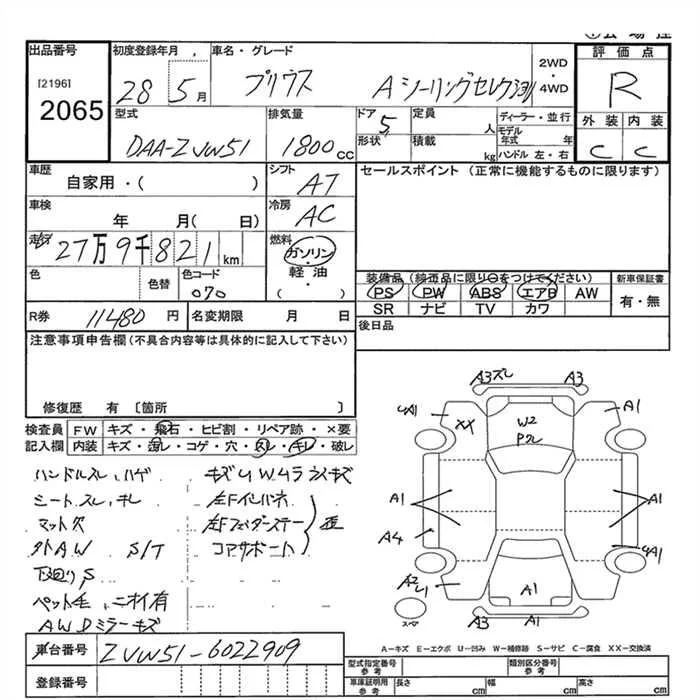 出品番号
[2196]
2065
初度登録年月
28 5月
車名・グレード
プリウス Aシーリングセレクション
2WD
・
4WD
評価点
R
外装 内装
C C
型式
DAA-ZVW51
排気量
1800 CC
ドア
5
形状
定員
人
積載
kg
ディーラー・並行
モデル
年式 年
ハンドル 左・右
車歴
自家用・( )
シフト
AT
車検
年 月( 日)
冷房
AC
走行
27万9千821 km
燃料
ガソリン
・
軽油
・
( )
色
色替
色コード
070
R券 11480 円
名変期限 月 日
セールスポイント (正常に機能するものに限ります)
装備品 (純正品に限り○をつけてください)
PS PW ABS エアB AW
SR ナビ TV カワ
新車保証書
有・無
後日品
注意事項申告欄 (不具合内容等は具体的に記入して下さい)
修復歴 有 〔箇所 〕
検査員
記入欄
FW キズ・飛石・ヒビ割・リペア跡・×要
内装 キズ・汚レ・コゲ・穴・スレ・キレ・破レ
ハンドルスレ、ハゲ
シートスレ、キレ
マット穴
タトAW S/T
下廻りS
ペット毛、ニオイ有
AWDミラーキズ
キズUWムラランスキズ
左Fインパネ
左Fフェンダーステー
コアサポート
歪
A3スレ A3
UA1 A1
XX
W2
Pクレ
A1 A1
A4
UA1
A2 U1
A1
スペア
A3 A1
A－キズ E－エクボ U－凹み W－補修跡 S－サビ C－腐食 XX－交換済
車台番号 ZVW51-6022909
登録番号
型式指定番号
参考
類別区分番号
参考
車庫証明用
参考
長さ cm
幅 cm
高さ cm